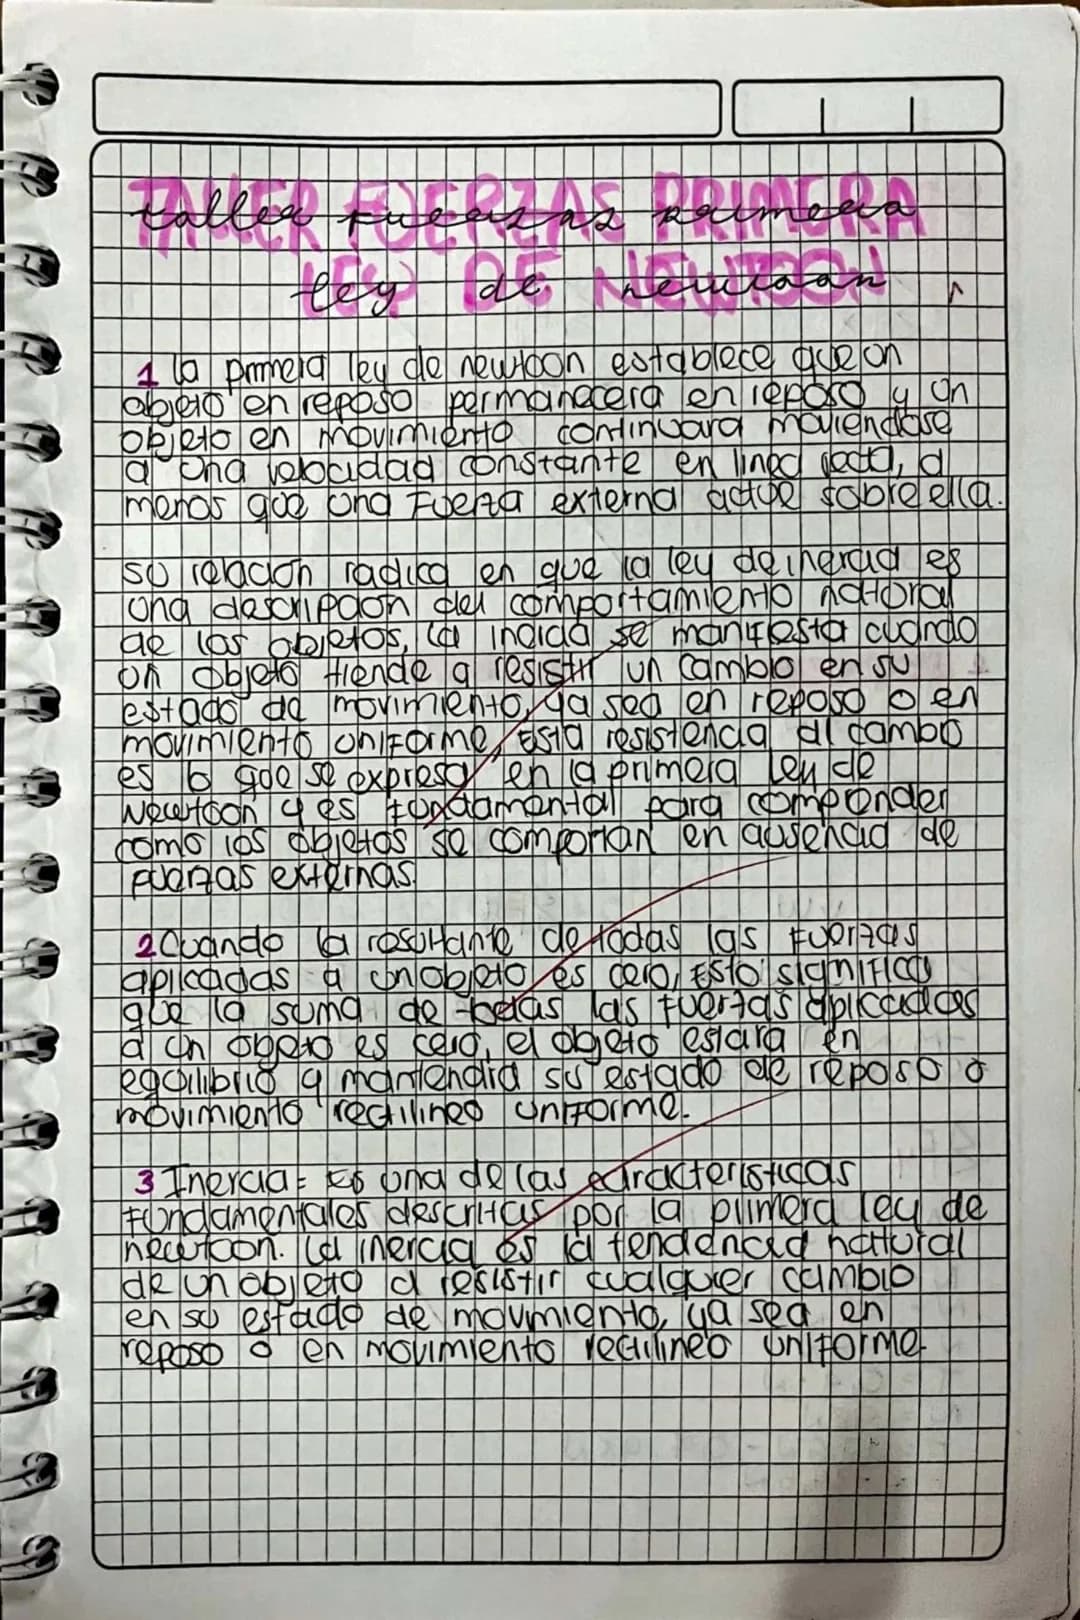 TALLER FUERZAS PRIMERA
LEY DE NEWTOON
1 la primera ley de newtoon establece que un
objeto en reposo permanecera en reposo y un
objeto en movimiento continuara moviendose
a una velocidad constante en linea recta, a
menos que una Fuerza externa actue sobre ella.
su relacion radica en que la ley de inercia es
una descripcion del comportamiento natural
de los objetos, la inercia se manifiesta cuando
un objeto tiende a resistir un cambio en su
estado de movimiento, ya sea en reposo o en
movimiento uniforme, Esta resistencia al cambio
es lo que se expresa en la primera Ley de
Newtoon y es fundamental para comprender
como los objetos se comportan en ausencia de
fuerzas externas.
2 Cuando la resultante de todas las Fuerzas
aplicadas a un objeto es cero, Esto significa
que la suma de todas las fuerzas aplicadas
a un objeto es cero, el objeto estara en
equilibrio y mantendra su estado de reposo o
movimiento rectilineo uniforme.
3 Inercia= Es una de las caracteristicas
Fundamentales descritas por la primera ley de
newtoon. La inercia es la tendencia natural
de un objeto a resistir cualquier cambio
en su estado de movimiento, ya sea en
reposo o en movimiento rectilineo uniforme.